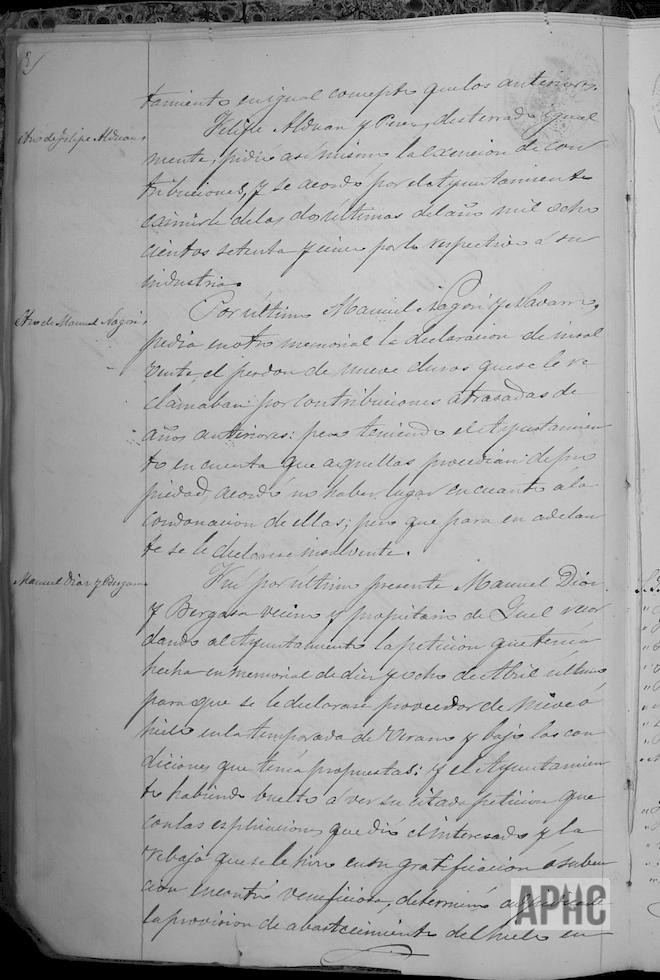 tamiento en igual concepto que los anteriores.
Otro de Felipe Alduan
Felipe Alduan y Perez, desterrado igual
mente, pidió asi mismo la exencion de con
tribuciones, y se acordó por el Ayuntamiento
eximirle de las dos últimas del año mil ocho
cientos setenta y cinco por lo respectivo á su
industria.
Otro de Manuel Nagori
Por último Manuel Nagori y Navarro,
pedia en otro memorial la declaracion de insol
vente, el perdon de nueve duros que se le re
clamaban por contribuciones atrasadas de
años anteriores: pero teniendo el Ayuntamien
to en cuenta que aquellas procedian de pro
piedad, acordó no haber lugar en cuanto á la
condonacion de ellas; pero que para en adelan
te se le declarase insolvente.
Manuel Diaz y Bergasa
Fué por último presente Manuel Diaz
y Bergasa vecino y propietario de Quel recor
dando al Ayuntamiento la peticion que tenia
hecha en memorial de diez y ocho de Abril último
para que se le declarase proveedor de nieve ó
hielo en la temporada de Verano y bajo las con
diciones que tenia propuestas: y el Ayuntamien
to habiendo buelto á ver su citada peticion que
con las esplicaciones que dió el interesado y la
rebaja que se le hizo en su gratificacion ó suben
cion encontró veneficiosa, determinó adjudicarle
la provision de abastecimiento del hielo en
APHC